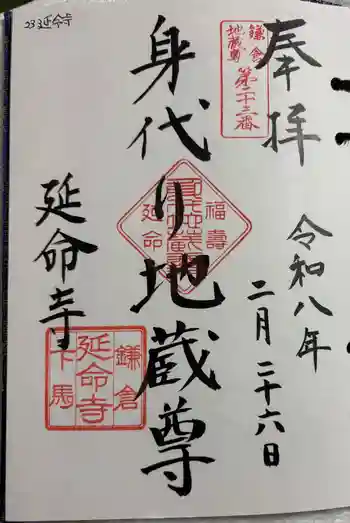 23 延命寺
奉拝
鎌倉
地蔵尊
第二十三番
令和八年
二月二十六日
身代り地蔵尊
福壽
延命
延命寺
鎌倉
延命寺
下馬